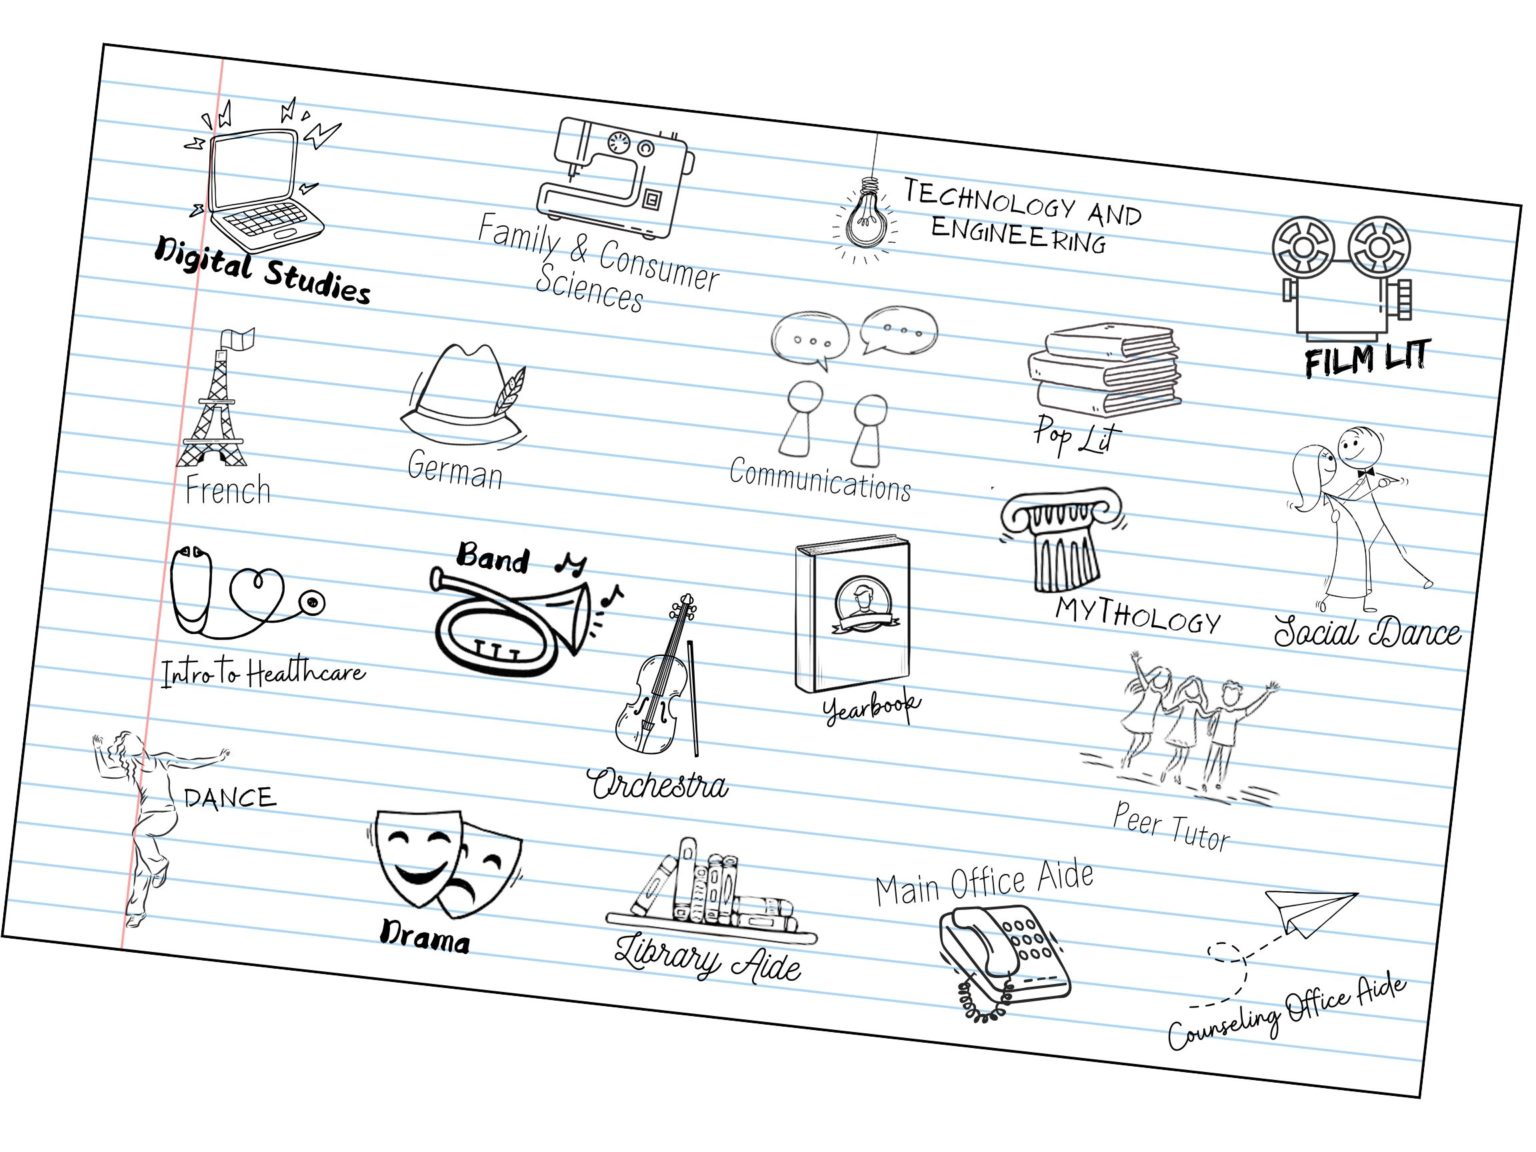 Digital Studies
Family & Consumer
Sciences
TECHNOLOGY AND
ENGINEERING
FILM LIT
French
German
Communications
Pop Lit
Intro to Healthcare
Band
Orchestra
Yearbook
MYTHOLOGY
Social Dance
DANCE
Drama
Library Aide
Main Office Aide
Peer Tutor
Counseling Office Aide